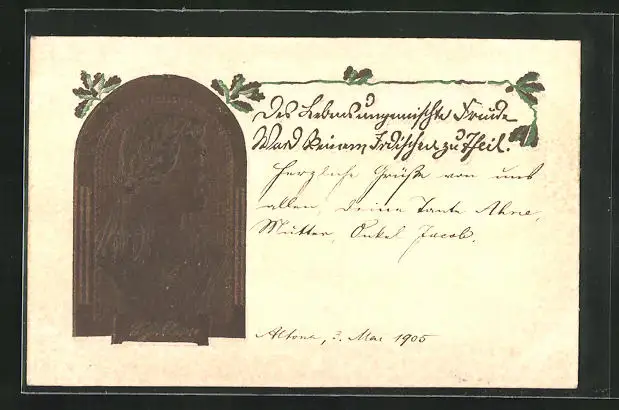 Des Lebens ungemischte Freude
Ward keinem Irdischen zu Theil.
Herzliche Grüße von uns
allen, Deine Tante Ahne,
Mutter, Onkel Jacob.
Altona, 3. Mai 1905